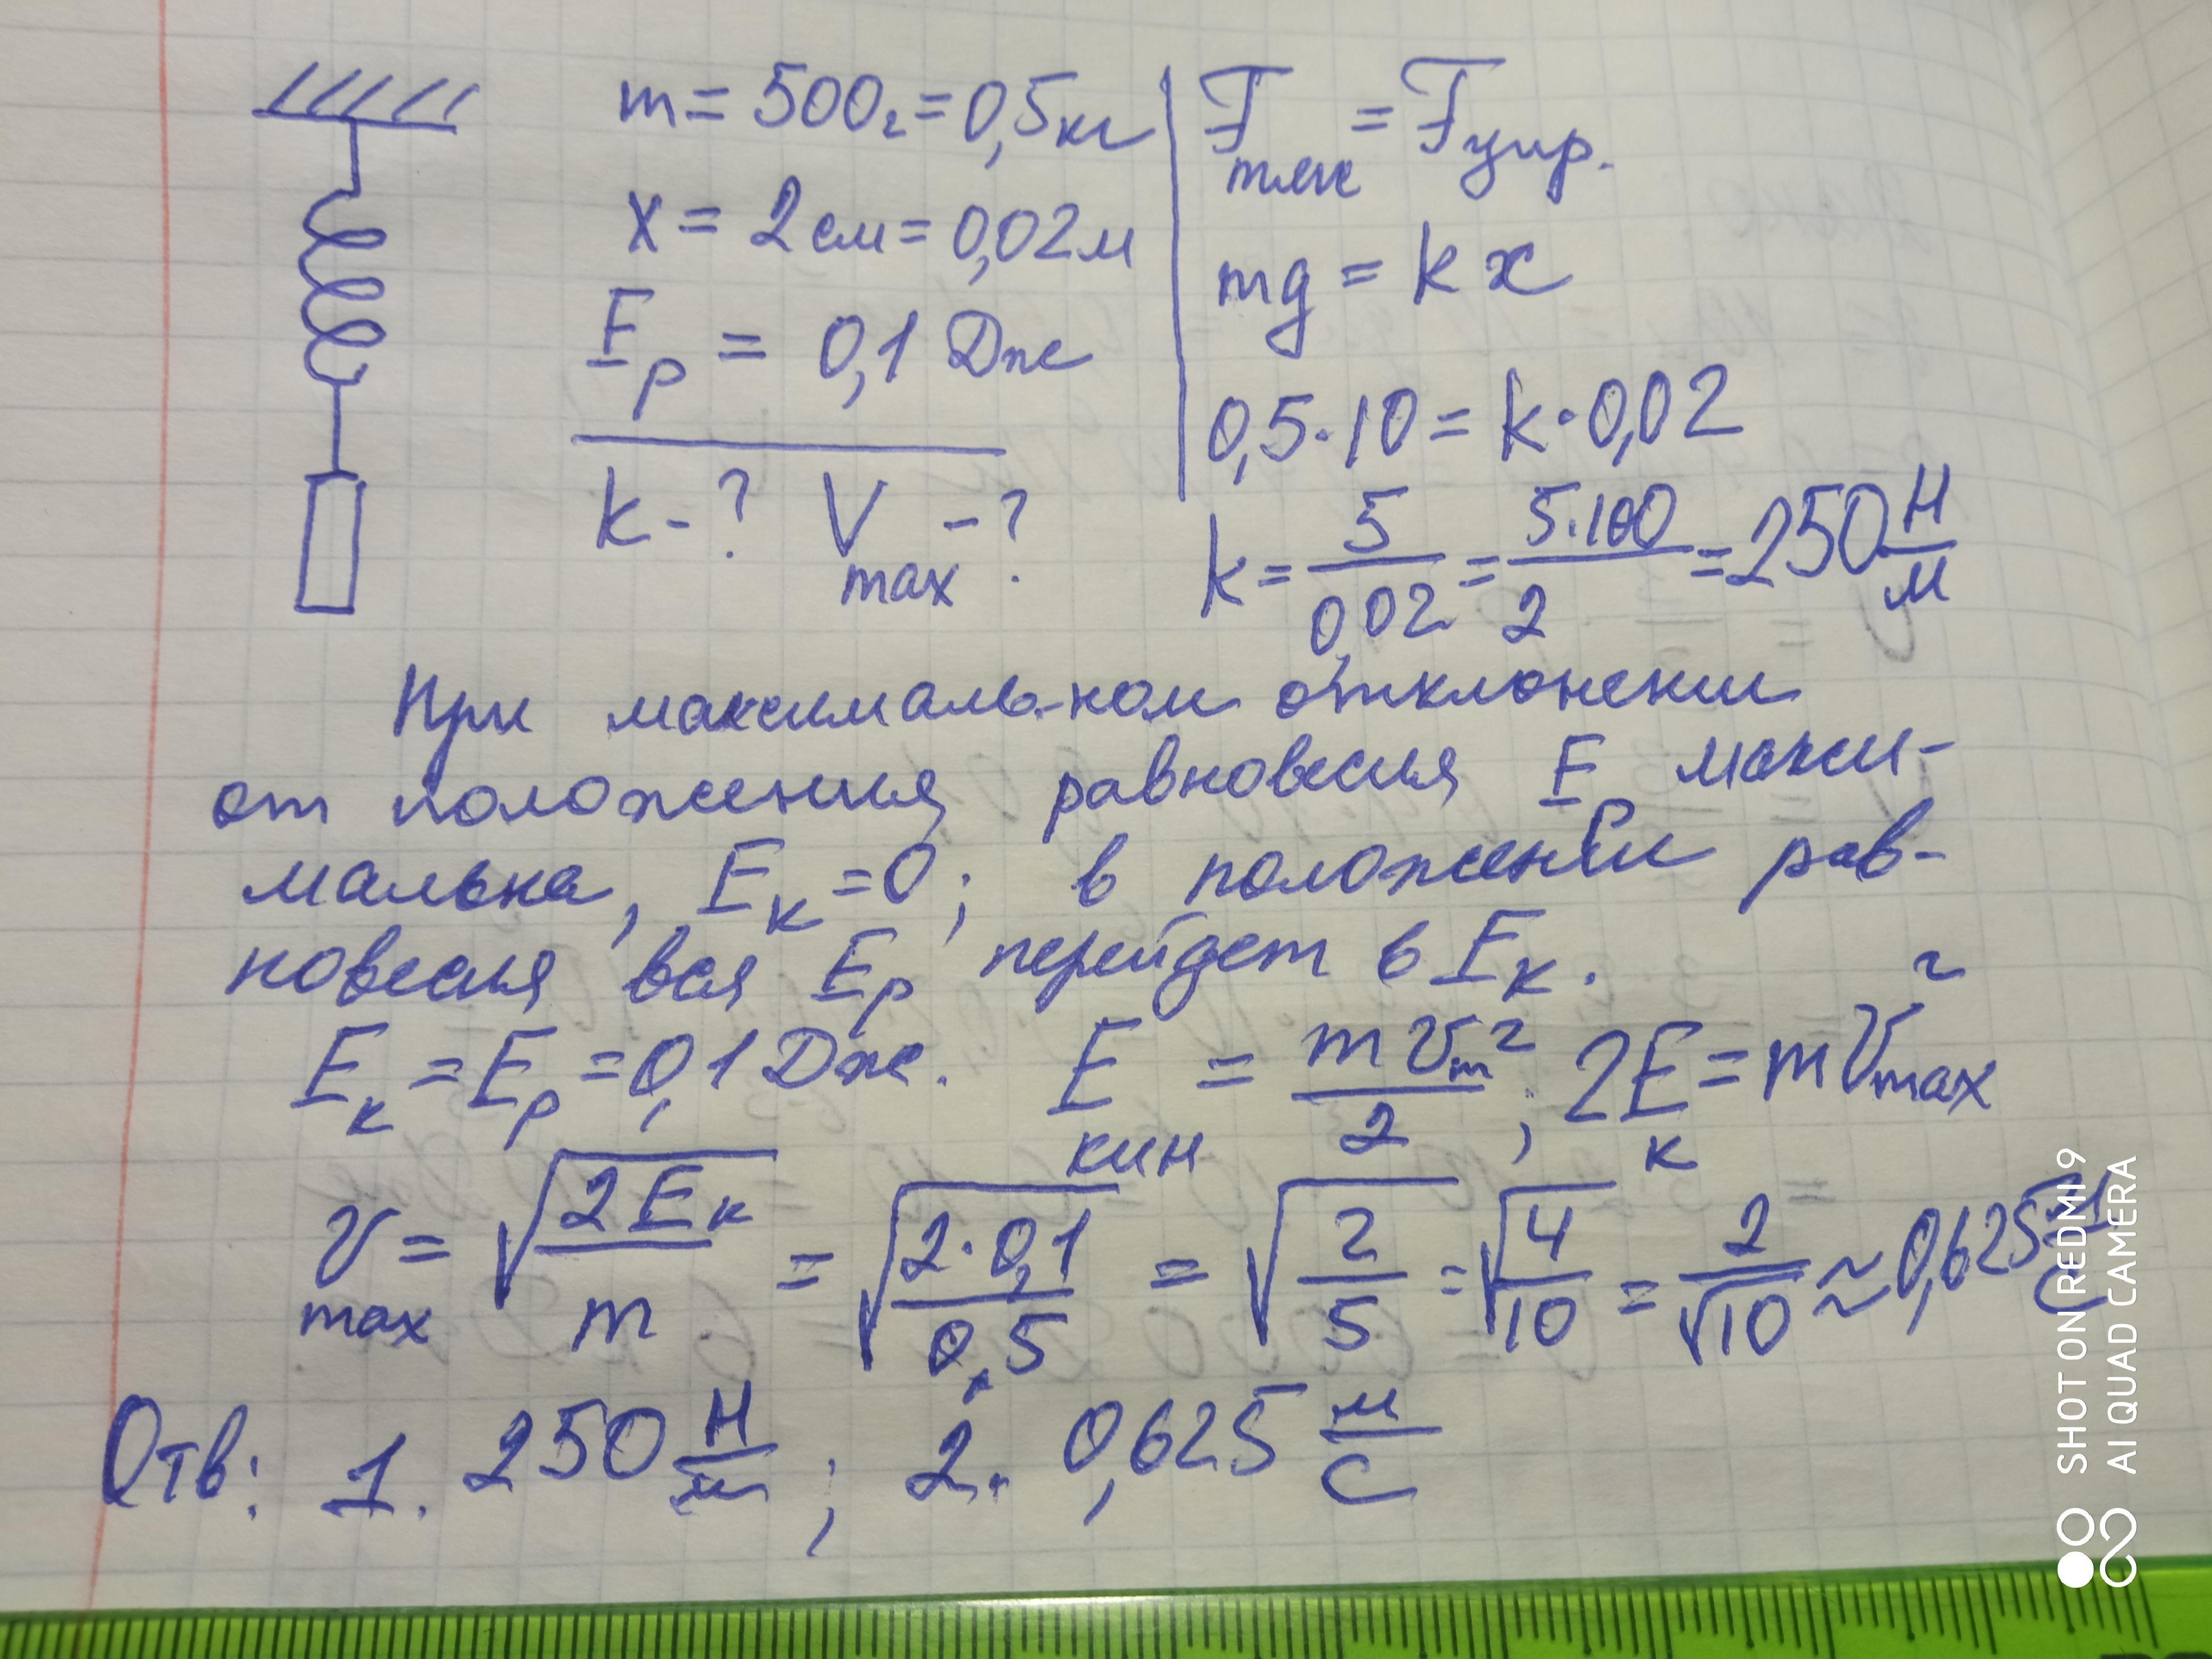 m = 500г = 0,5кг
x = 2см = 0,02м
Ep = 0,1 Дж
k - ? Vmax - ?
Fтяж = Fупр.
mg = kx
0,5·10 = k·0,02
k = 5/0,02 = 5·100/2 = 250 Н/м
При максималь-ном отклонении
от положения равновесия Ep макси-
мальна, Eк = 0; в положении рав-
новесия вся Ep перейдет в Eк.
Eк = Ep = 0,1 Дж. Eкин = mvm²/2; 2Eк = mVmax²
vmax = √(2Eк/m) = √(2·0,1/0,5) = √(2/5) = √(4/10) = 2/√10 ≈ 0,625 м/с
Отв: 1. 250 Н/м; 2. 0,625 м/с
SHOT ON REDMI 9
AI QUAD CAMERA